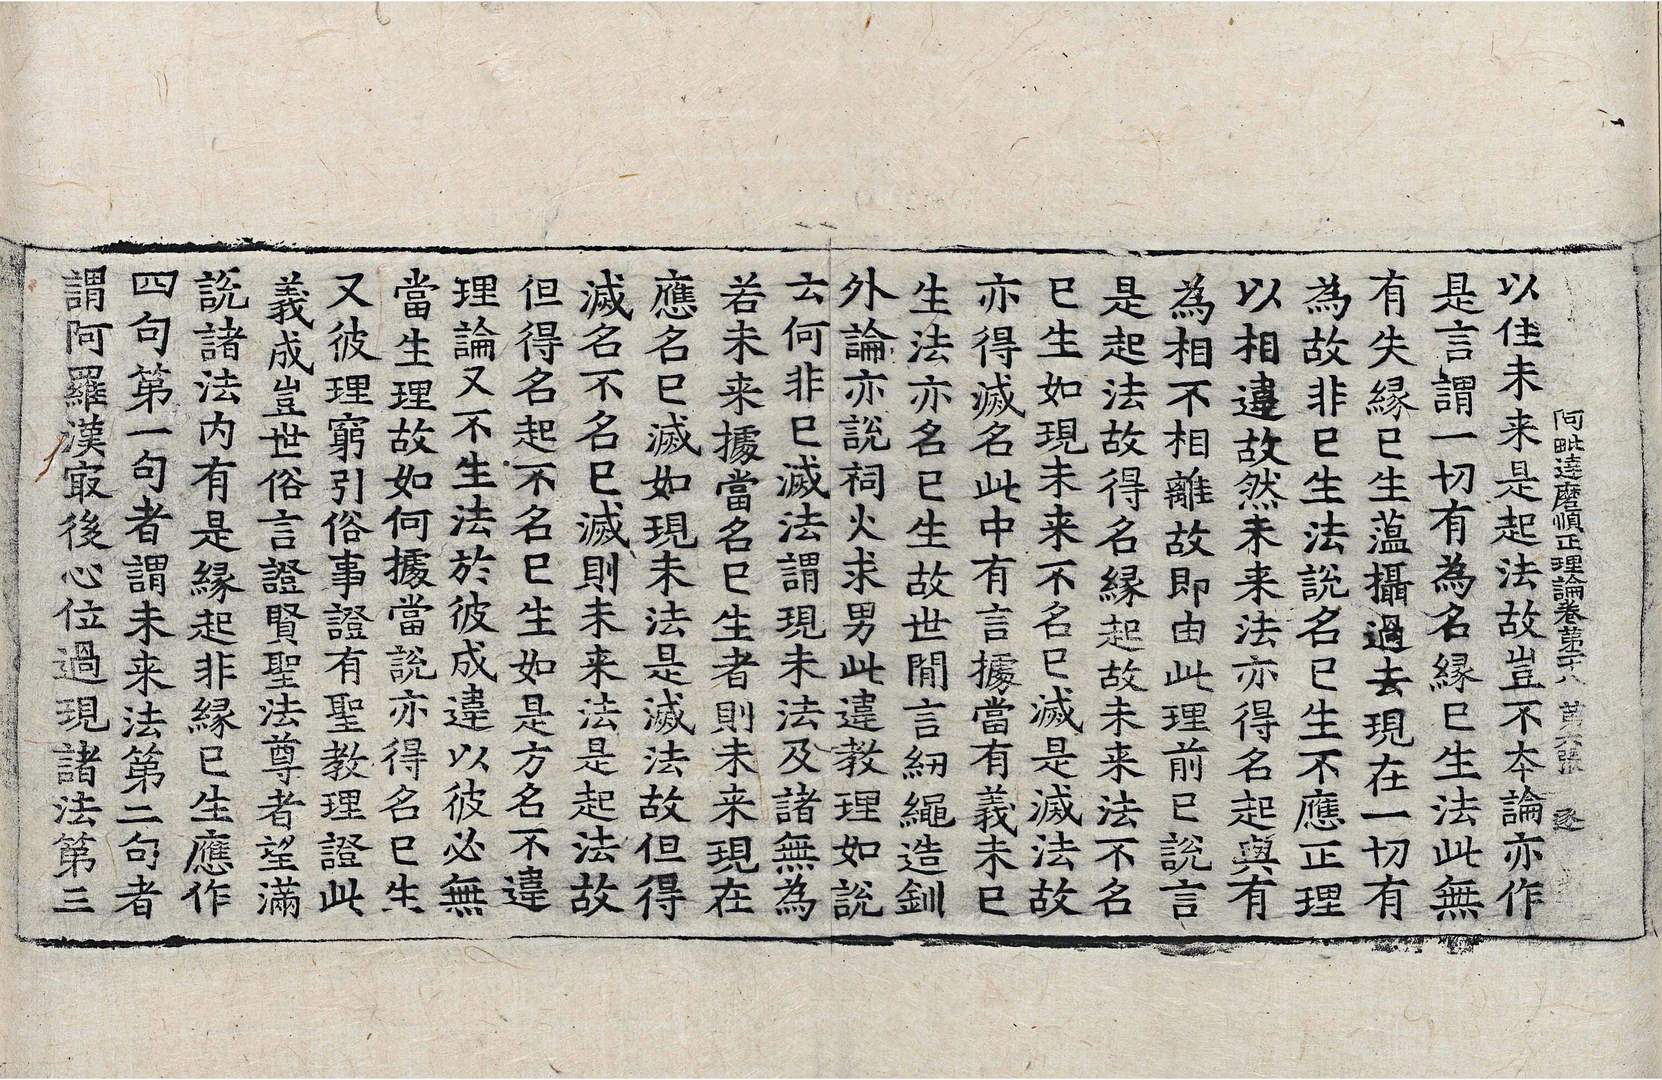 阿毗達磨順正理論卷第二十八 第六張 逐
以住未来是起法故豈不夲論亦作
是言謂一切有為名縁巳生法此無
有失縁巳生薀攝過去現在一切有
為故非巳生法說名巳生不應正理
以相違故然未来法亦得名起與有
為相不相離故即由此理前巳說言
是起法故得名縁起故未来法不名
巳生如現未来不名巳滅是滅法故
亦得滅名此中有言據當有義未巳
生法亦名巳生故世間言紉繩造釧
外論亦說祠火求男此違教理如說
云何非巳滅法謂現未法及諸無為
若未来據當名巳生者則未来現在
應名巳滅如現未法是滅法故但得
滅名不名巳滅則未来法是起法故
但得名起不名巳生如是方名不違
理論又不生法於彼成違以彼必無
當生理故如何據當說亦得名巳生
又彼理窮引俗事證有聖教理證此
義成豈世俗言證賢聖法尊者望滿
說諸法内有是縁起非縁巳生應作
四句第一句者謂未来法第二句者
謂阿羅漢㝡後心位過現諸法第三